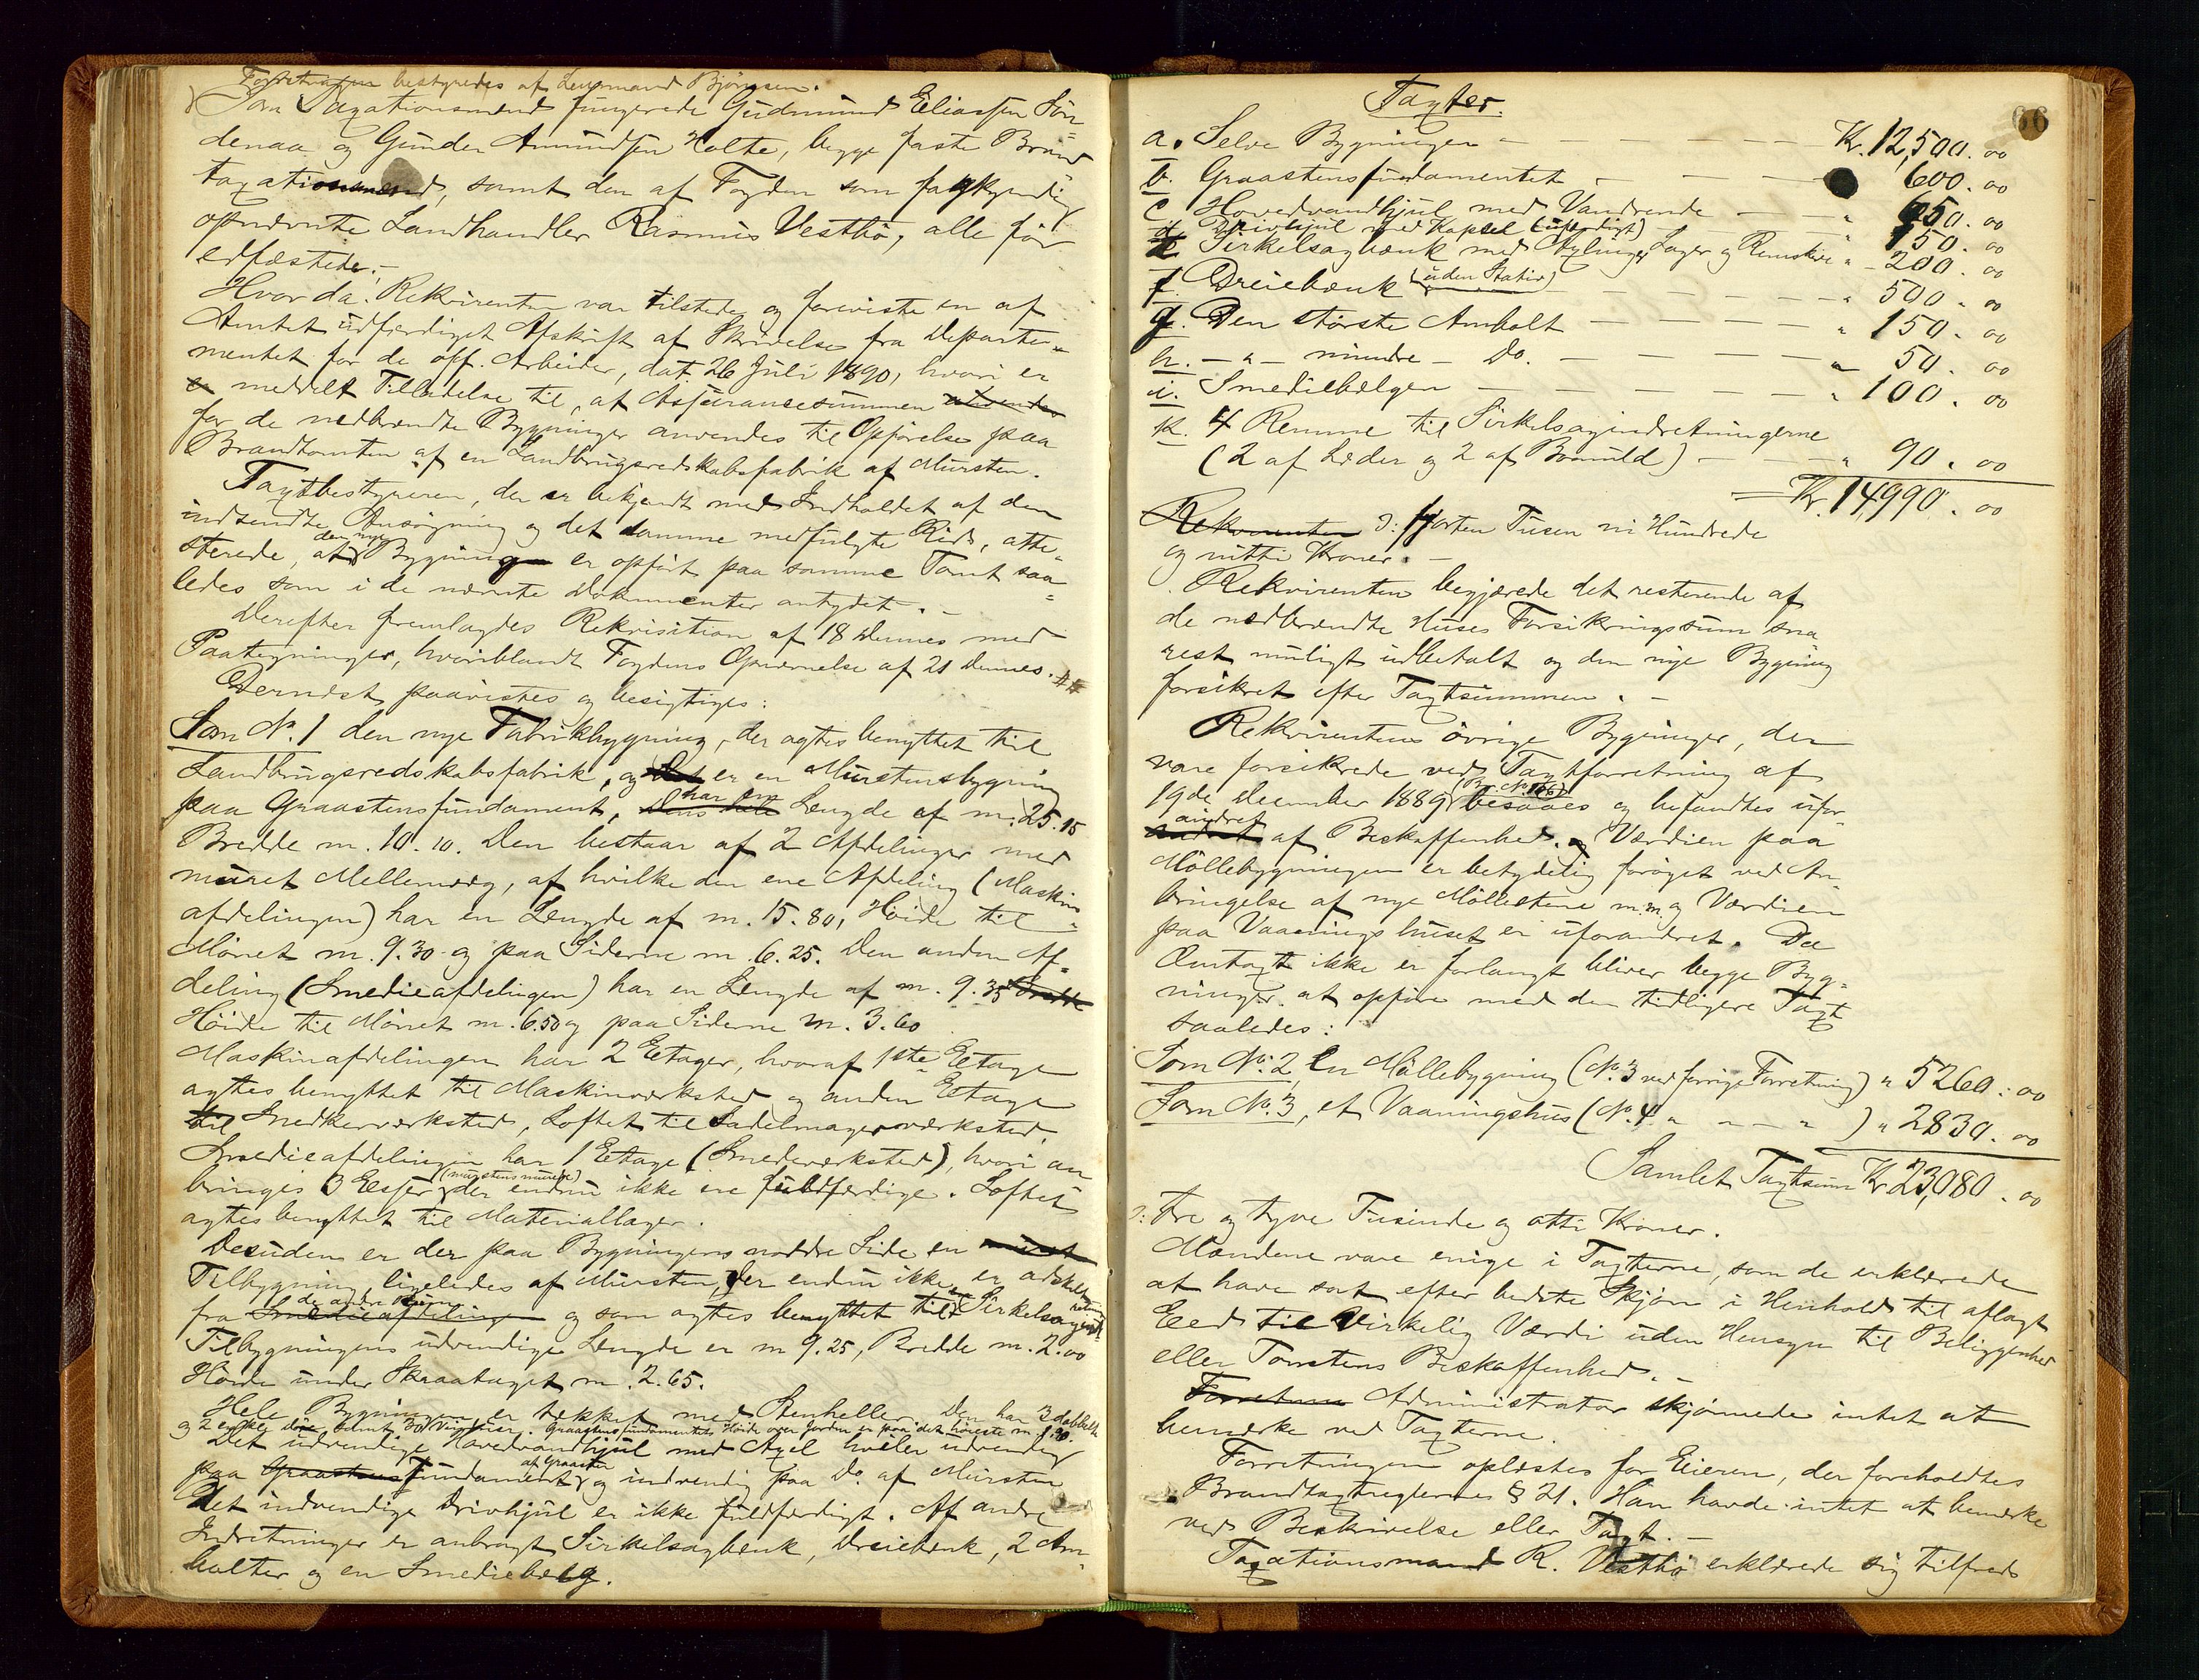 Forretningen bestyredes af Lensmand Bjørnsen.
Som Taxationsmænd fungerede Gudmund Eliassen Søn-
denaa og Gunder Amundsen Holte, begge faste Brand
taxationsmænd, samt den af Fogden som fagkyndig
opnævnte Landhandler Rasmus Vestbø, alle før
edfæstede.-
Hvorda: Rekvirenten var tilstede og foreviste en af
Amtet udfærdiget Afskrift af Skrivelse fra Departe-
mentet for de off. Arbeider, dat. 26 Juli 1890, hvori er
er meddelt Tilladelse til, at Assurancesummen anvendes
for de nedbrændte Bygninger anvendes til Opførelse paa
Brandtomten af en Landbrugsredskabsfabrik af Mursten.
Taxtbestyreren, der er bekjendt med Indholdet af den
indsendte Ansøgning og det samme medfulgte Rids, atte-
sterede, at den nye Bygning er opført paa samme Tomt saa-
ledes som i de nævnte Dokumenter antydet.-
Derefter fremlagdes Rekvisition af 18 dennes med
Paategninger, hvoriblandt Fogdens Opnævnelse af 21 dennes.
Dernæst paavistes og besigtiges:
Som No. 1 den nye Fabrikbygning, der agtes benyttet til
Landbrugsredskabsfabrik, og Det er en Murstensbygning
paa Graastensfundament, Dens hele har en Længde af m. 25.15
Bredde m. 10.10. Den bestaar af 2 Afdelinger med
muret Mellemvæg, af hvilke den ene Afdeling (Maskin
afdelingen) har en Længde af m. 15.80, Høide til
Mønet m. 9.30 og paa Siderne m. 6.25. Den anden Af-
deling (Smedieafdelingen) har en Længde af m. 9.35 Bredde
Høide til Mønet m. 6.50 og paa Siderne m. 3.60
Maskinafdelingen har 2 Etager, hvoraf 1ste Etage
agtes benyttet til Maskinværksted og anden Etage
til Snedkerværksted, Loftet til Sadelmagerværksted.
Smedieafdelingen har 1 Etage (Smedeværksted), hvori an
bringes 3 Esser (murstensmurede) der endnu ikke ere fuldfærdige. Loftet
agtes benyttet til Materiallager.
Desuden er der paa Bygningens nordre Side en muret
Tilbygning, ligeledes af Mursten, der endnu ikke er adskelt
fra Smedieafdelingen de andre Rum og som agtes benyttet til en Sirkelsagind-
retning
Tilbygningens udvendige Længde er m 9.25, Bredde m. 2.00
Høide under Skraataget m. 2.65.
Hele Bygningen er tækket med Stenheller. Den har 3 dobbelte
og 2 enkle døre samt 30 Vinduer. Graastensfundamentets Høide over Jorden er paa det høieste m. 1.90.
Det udvendige Hovedvandhjul med Axel hviler udvendig
paa Graastens Fundament af Graasten og indvendig paa Do. af Mursten
Det indvendige Drivhjul er ikke fuldfærdigt. Af andre
Indretninger er anbragt Sirkelsagbænk, Dreiebænk, 2 Am-
bolter og en Smediebelg.
66
Taxter.
a. Selve Bygningen - - - - - Kr. 12,500.00
b. Graastensfundamentet - - - - 600.00
c Hovedvandhjul med Vandrende - - " 650.00
d. Drivhjul med Kapsel (ufærdigt) " 150.00
e. Sirkelsagbænk med Axlinger, Lager og Remskive " 200.00
f. Dreiebænk (uden Stativ) - - - - " 500.00
g. Den største Ambolt - - - - " 150.00
h. - " - mindre - Do. - - - - " 50.00
i. Smediebelgen - - - - " 100.00
k. 4 Remme til Sirkelsagindretningerne
(2 af Læder og 2 af Bomuld) - - " 90.00
= Kr. 14,990.00
Rekvirenten ɔ: fjorten Tusen ni Hundrede
og nitti Kroner.-
Rekvirenten begjærede det resterende af
de nedbrændte Huses Forsikringssum sna
rest muligt udbetalt og den nye Bygning
forsikret efter Taxtsummen.-
Rekvirentens øvrige Bygninger, der
vare forsikrede ved Taxtforretning af
19de December 1889 (Br. No. 166) besaaes og befandtes ufor-
andret af Beskaffenhed. og Værdien paa
Møllebygningen er betydelig forøget ved An-
bringelse af nye Møllestene m.m. og Værdien
paa Vaaningshuset er uforandret. Da
Omtaxt ikke er forlangt bliver begge Byg-
ninger at opføre med den tidligere Taxt
saaledes:
Som No. 2, En Møllebygning (No. 3 ved forrige Forretning) " 5260.00
Som No. 3, et Vaaningshus (No. 4 " " - " ) " 2830.00
Samlet Taxtsum Kr. 23,080.00
ɔ: Tre og tyve Tusinde og otti Kroner.
Mændene vare enige i Taxterne, som de erklærede
at have sat efter bedste Skjøn i Henhold til aflagt
Eed til Virkelig Værdi uden Hensyn til Beliggenhed
eller Tomtens Beskaffenhed.-
Administrator skjønnede intet at
bemærke ved Taxterne.
Forretningen oplæstes for Eieren, der foreholdtes
Brandtaxtreglernes § 21. Han havde intet at bemærke
ved Beskrivelse eller Taxt.-
Taxationsmand R. Vestbø erklærede sig tilfreds